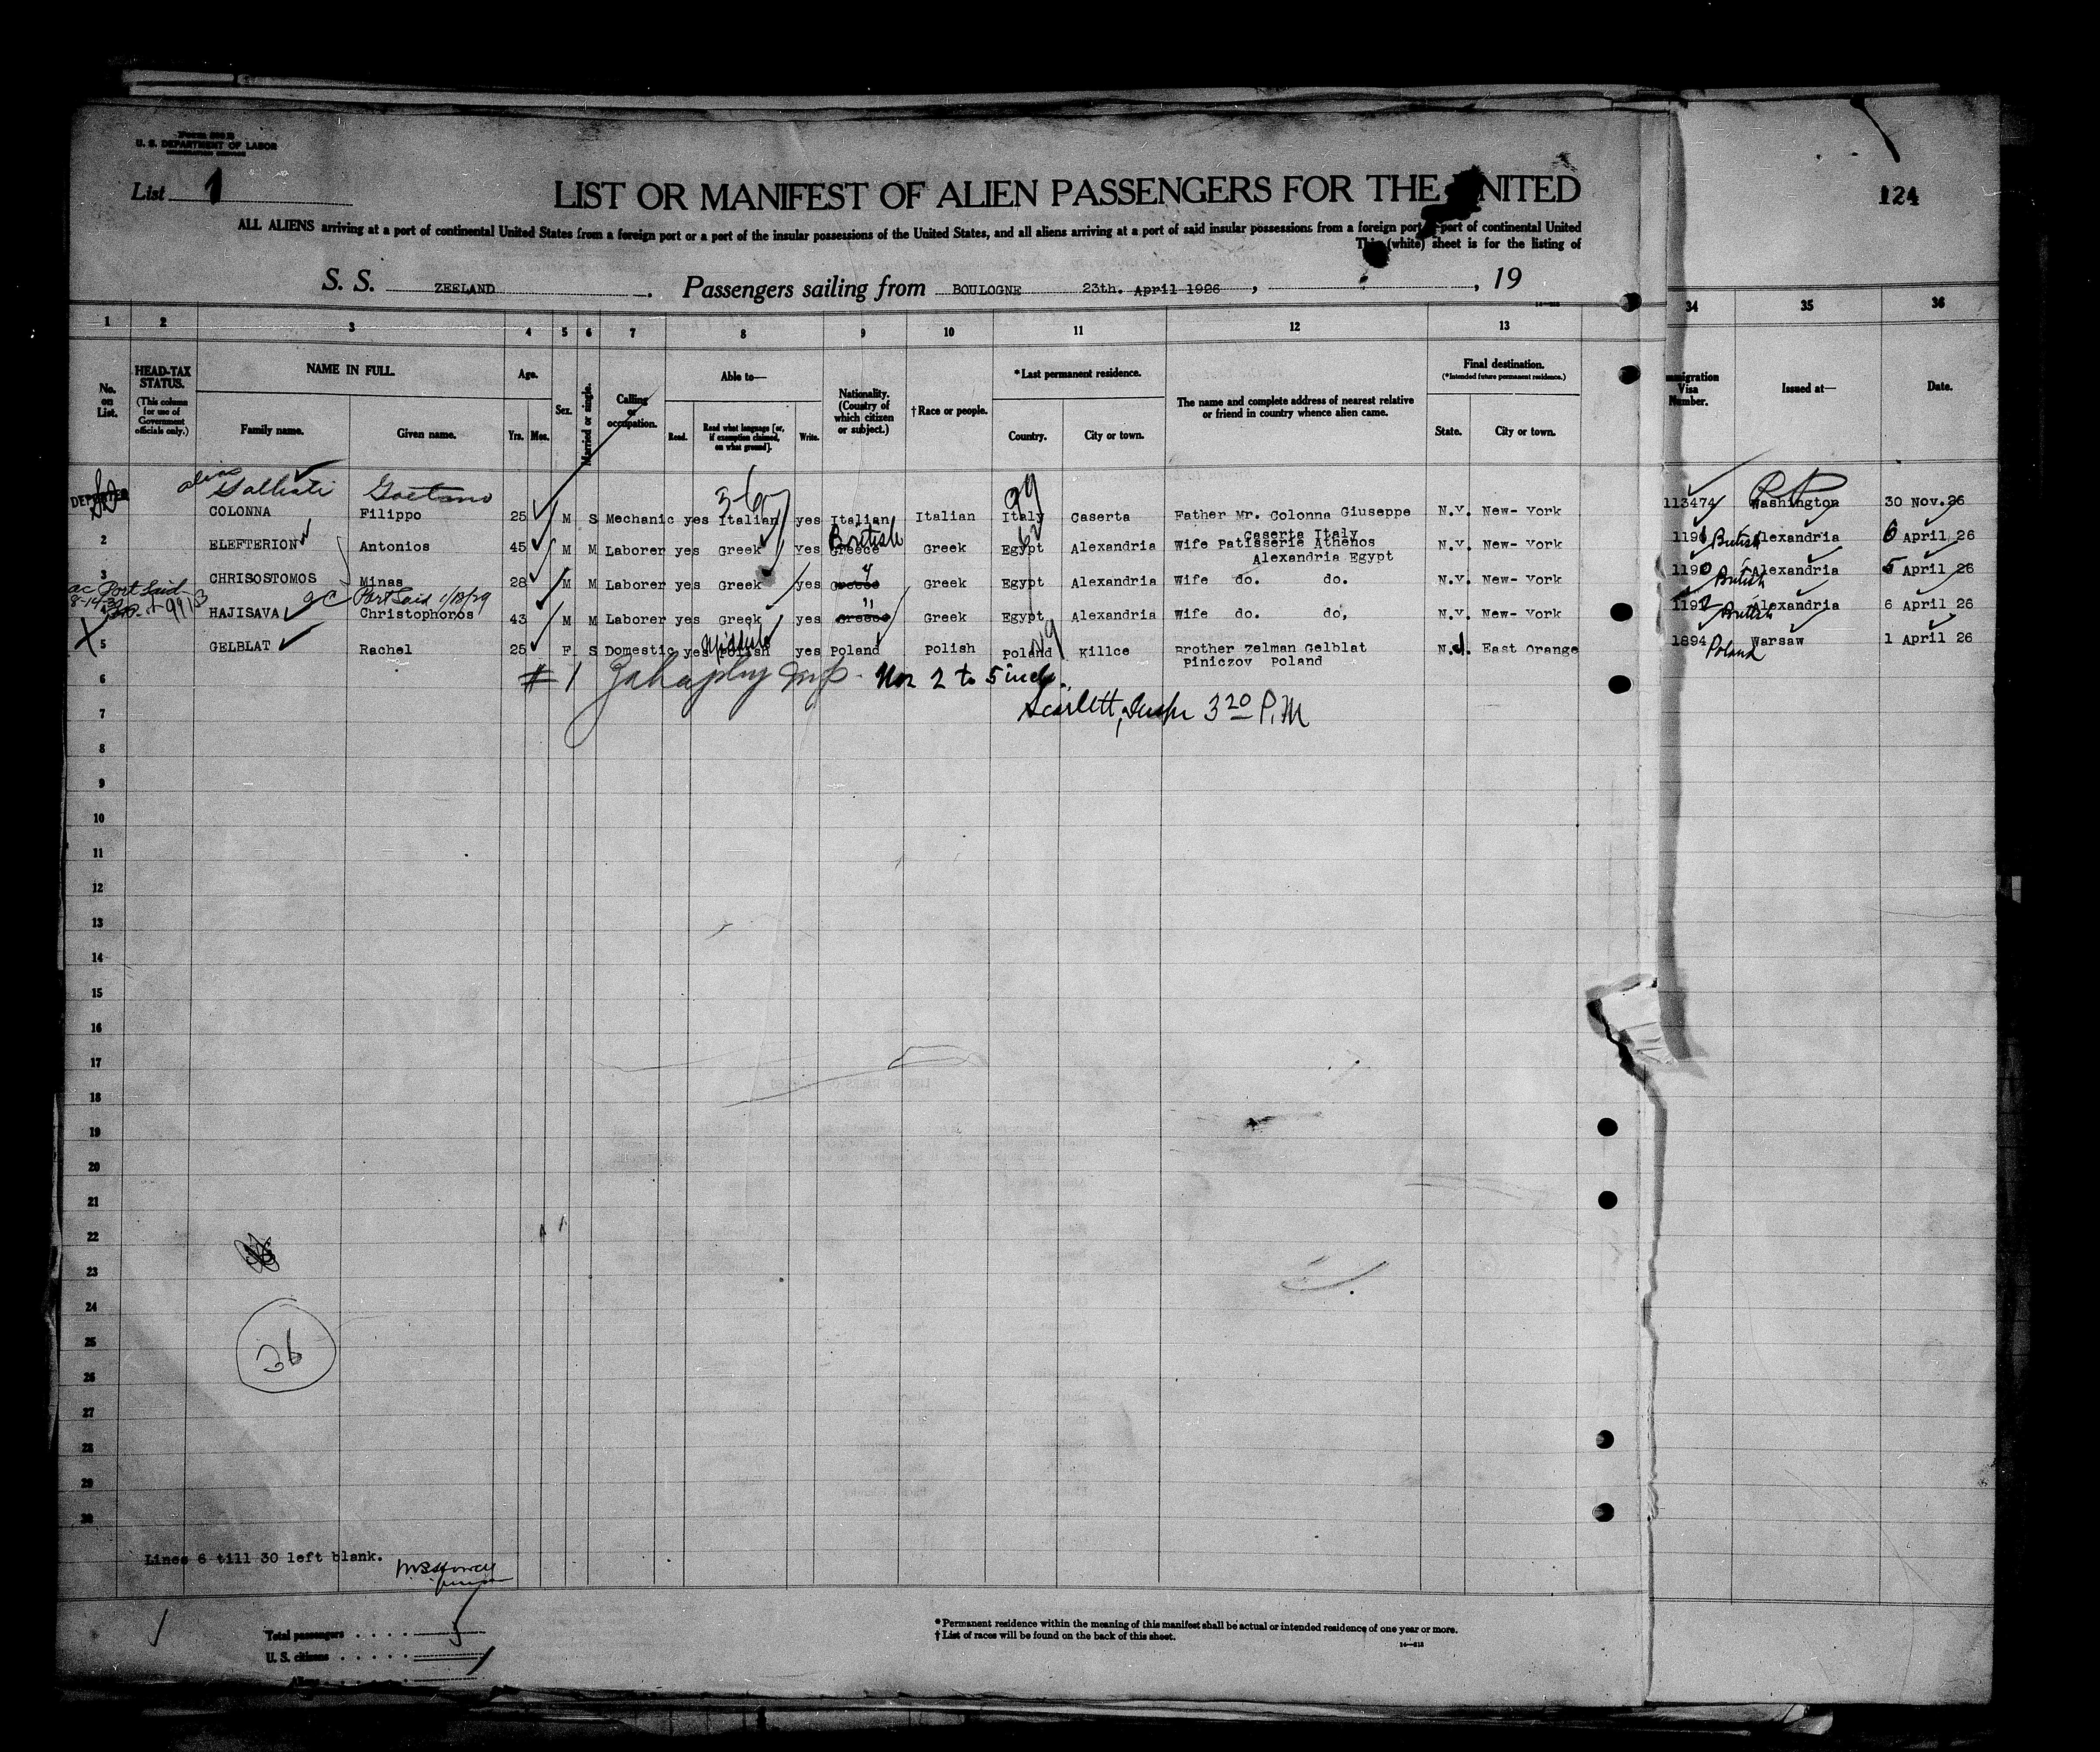 U. S. DEPARTMENT OF LABOR
List 1
LIST OR MANIFEST OF ALIEN PASSENGERS FOR THE UNITED
124
ALL ALIENS arriving at a port of continental United States from a foreign port or a port of the insular possessions of the United States, and all aliens arriving at a port of said insular possessions from a foreign port port of continental United
This (white) sheet is for the listing of
S. S. ZEELAND. Passengers sailing from BOULOGNE 23th. April 1926, , 19
1 2 3 4 5 6 7 8 9 10 11 12 13 34 35 36
No. on List.
HEAD-TAX STATUS.
(This column for use of Government officials only.)
NAME IN FULL.
Family name. Given name.
Age.
Yrs. Mos.
Sex.
Married or single.
Calling or occupation.
Able to—
Read. Read what language [or, if exemption claimed, on what ground]. Write.
Nationality. (Country of which citizen or subject.)
†Race or people.
*Last permanent residence.
Country. City or town.
The name and complete address of nearest relative or friend in country whence alien came.
Final destination.
(*Intended future permanent residence.)
State. City or town.
Visa Number.
Issued at—
Date.
alias Gaetano
DEPORTED COLONNA Filippo 25 M S Mechanic yes Italian yes Italian Italian Italy Caserta Father Mr. Colonna Giuseppe N.Y. New- York 113474 Washington 30 Nov.26
Caserta Italy
British
2 ELEFTERION Antonios 45 M M Laborer yes Greek yes Greece Greek Egypt Alexandria Wife Patisserie Athenos N.Y. New- York 1191 British Alexandria 6 April 26
Alexandria Egypt
3 CHRISOSTOMOS Minas 28 M M Laborer yes Greek yes Greece " Greek Egypt Alexandria Wife do. do. N.Y. New- York 1190 British Alexandria 5 April 26
ac Port Said Port Said 1/18/29
HAJISAVA Christophoros 43 M M Laborer yes Greek yes Greece " Greek Egypt Alexandria Wife do. do, N.Y. New- York 1192 British Alexandria 6 April 26
5 GELBLAT Rachel 25 F S Domestic yes Polish yes Poland Polish Poland Killce Brother Zelman Gelblat N.J. East Orange 1894 Poland Warsaw 1 April 26
Piniczov Poland
6 # 1 2 to 5 incl.
7 Scarlett, Inspr 3 20 P.M
8
9
10
11
12
13
14
15
16
17
18
19
20
21
22
23
24
25
36
26
27
28
29
30
Lines 6 till 30 left blank.
Total passengers 5
U. S. citizens
Aliens
*Permanent residence within the meaning of this manifest shall be actual or intended residence of one year or more.
†List of races will be found on the back of this sheet.